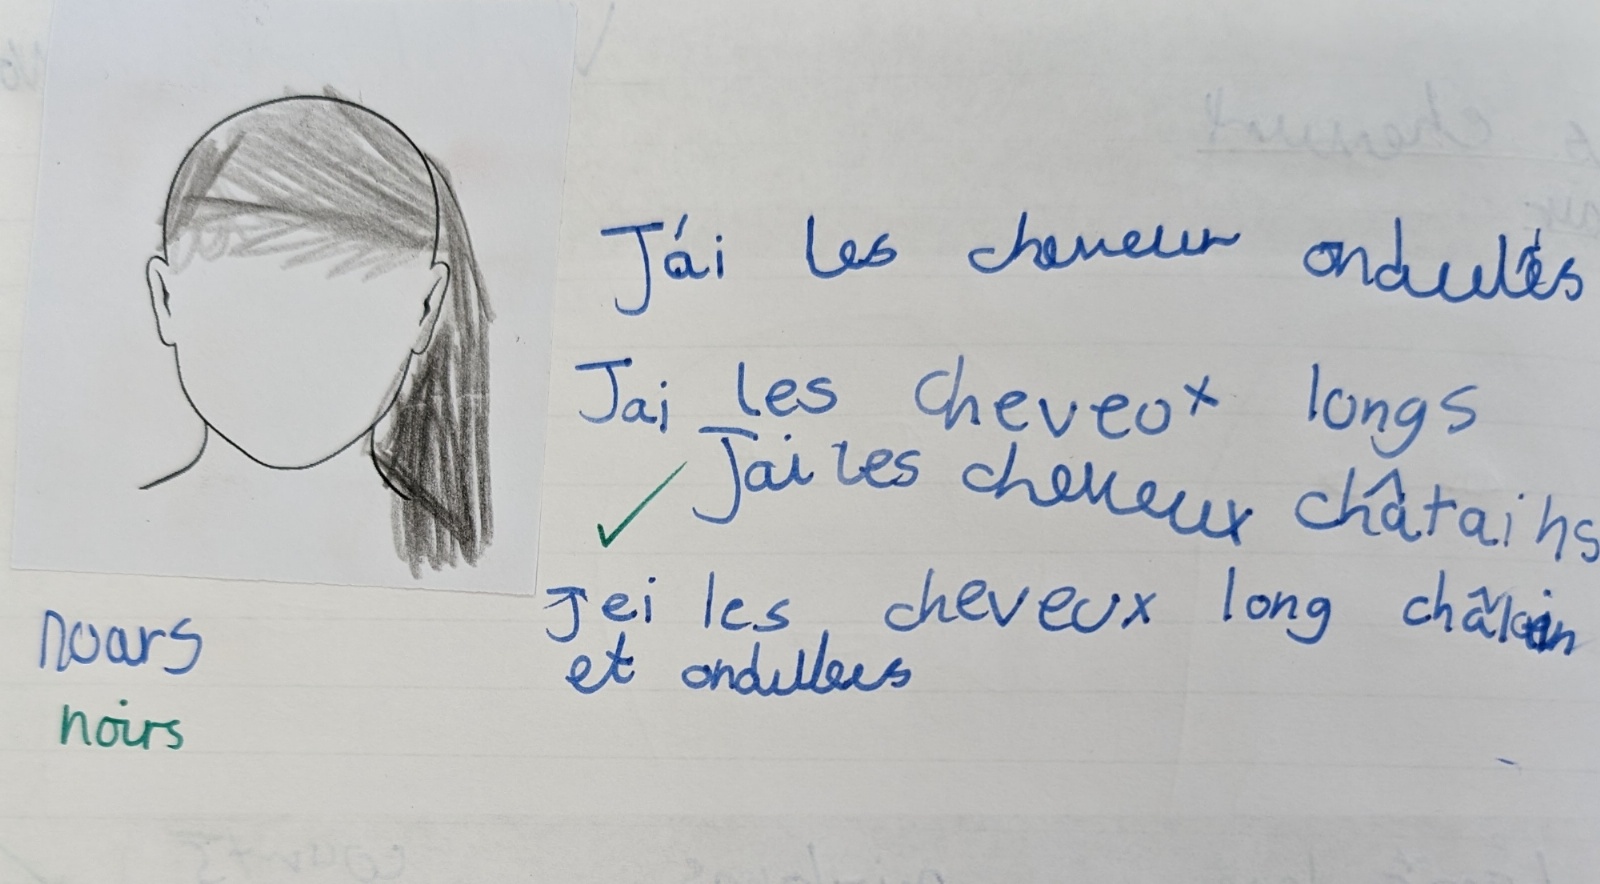 J'ai les cheveux ondulés
Jai les cheveux longs
Jai les cheveux châtains
Jei les cheveux long châtain
et ondullees
noars
noirs